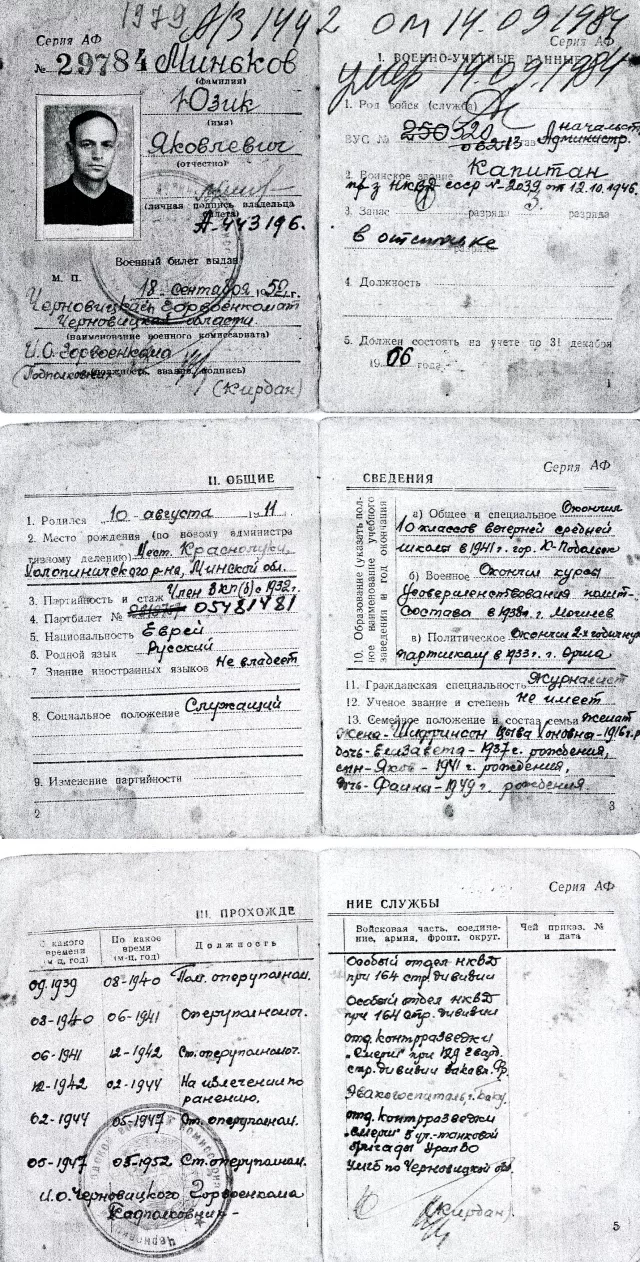 1979 А/З 1442 от 14.09.1984
Серия АФ
№ 29784 Миньков
(фамилия)
Юзик
(имя)
Яковлевич
(отчество)
(личная подпись владельца билета)
А-443196.
Военный билет выдан
М. П.
18 сентября 1952 г.
Черновицкий Горвоенкомат
Черновицкой области
(наименование военного комиссариата)
И.О. Горвоенкома
Подполковник
(должность, звание, подпись)
(Кирдан)
Серия АФ
I. ВОЕННО-УЧЕТНЫЕ ДАННЫЕ
умер 14.09.1984
1. Род войск (служба)
ВУС № 250 320 состав начальст. Администр.
06213
2. Воинское звание Капитан
пр-з НКВД СССР № 2039 от 12.10.1946.
3. Запас разряда 3. разряда
в отставке
разряда
4. Должность
5. Должен состоять на учете по 31 декабря
1906 года
1
II. ОБЩИЕ
1. Родился 10 августа 1911
2. Место рождения (по новому административному делению) Мест. Краснолуки,
Холопиничского р-на, Минской обл.
3. Партийность и стаж Член ВКП(б) с 1932 г.
4. Партбилет № 05481481
5. Национальность Еврей
6. Родной язык Русский
7. Знание иностранных языков Не владеет
8. Социальное положение Служащий
9. Изменение партийности
2
СВЕДЕНИЯ
Серия АФ
10. Образование (указать полное наименование учебного заведения и год окончания
а) Общее и специальное Окончил
10 классов вечерней средней
школы в 1941 г. гор. К-Подольск
б) Военное Окончил курсы
усовершенствования полит-
состава в 1938 г. Могилев
в) Политическое Окончил 2-х годичную
партшколу в 1933 г. г. Орша
11. Гражданская специальность Журналист
12. Ученое звание и степень не имеет
13. Семейное положение и состав семьи женат
жена - Цыва 1916 г.р
дочь - Елизавета - 1937 г. рождения,
сын - Яков - 1941 г. рождения,
дочь - Фаина - 1949 г. рождения.
3
III. ПРОХОЖДЕ
С какого времени (м-ц, год) По какое время (м-ц, год) Должность
09.1939 08-1940 Пом. оперуполном.
08-1940 06-1941 Оперуполномоч.
06-1941 12-1942 Ст. оперуполномоч.
12-1942 02-1944 На излечении по
ранению.
02-1944 05-1947 Ст. оперуполном.
05-1947 03-1952 Ст. оперуполном.
И.О. Черновицкого Горвоенкома
Подполковник -
Серия АФ
НИЕ СЛУЖБЫ
Войсковая часть, соединение, армия, фронт, округ. Чей приказ, № и дата
Особый отдел НКВД
при 164 стр. дивизии
Особый отдел НКВД
при 164 стр. дивизии
отд. контрразведки
"Смерш" при 129 гвард.
стр. дивизии Закавк. Фр.
Эвакогоспиталь, г. Баку.
отд. контрразведки
"Смерш" 5 уч.-танковой
бригады УралВО
УМГБ по Черновицкой обл.
(Кирдан).
5